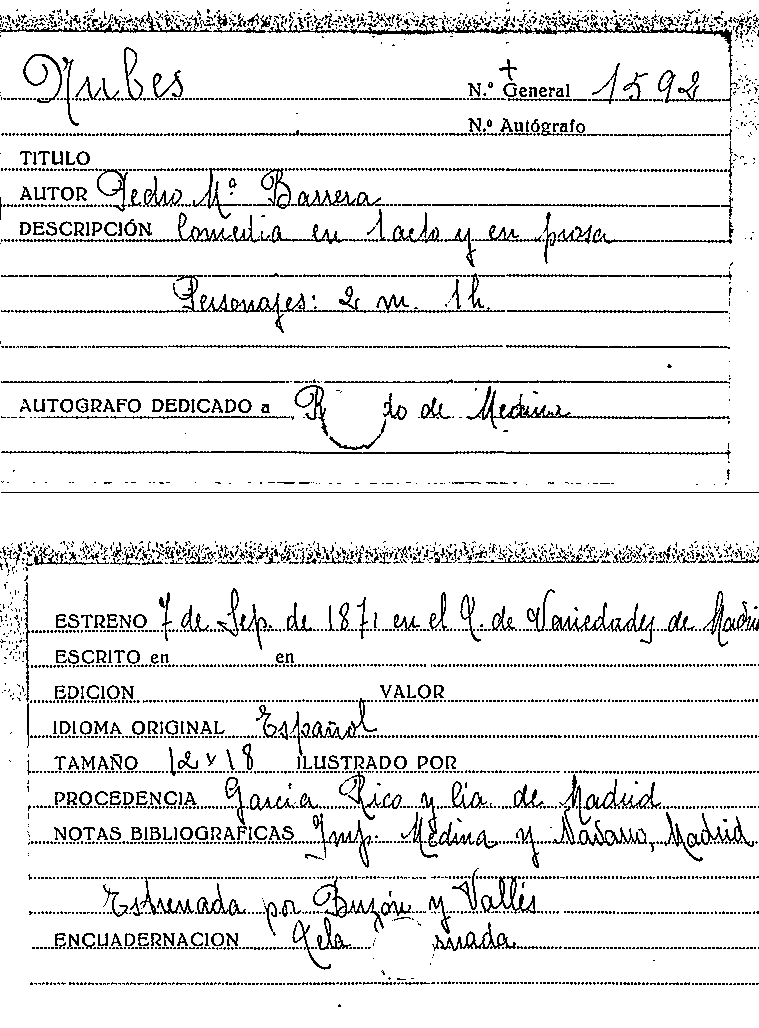 Nubes
N.º General 1592
N.º Autógrafo
TITULO
AUTOR Pedro Mª Barrera
DESCRIPCIÓN Comedia en 1 acto y en prosa
Personajes: 2 m. 1 h.
AUTOGRAFO DEDICADO a do de Medina
ESTRENO 7 de Sep. de 1871 en el T. de Variedades de Madrid
ESCRITO en en
EDICION VALOR
IDIOMA ORIGINAL Español
TAMAÑO 12 x 18 ILUSTRADO POR
PROCEDENCIA García Rico y Cia de Madrid
NOTAS BIBLIOGRAFICAS Imp. Medina y Navarro, Madrid
Estrenada por Buzón y Vallés
ENCUADERNACION Tela